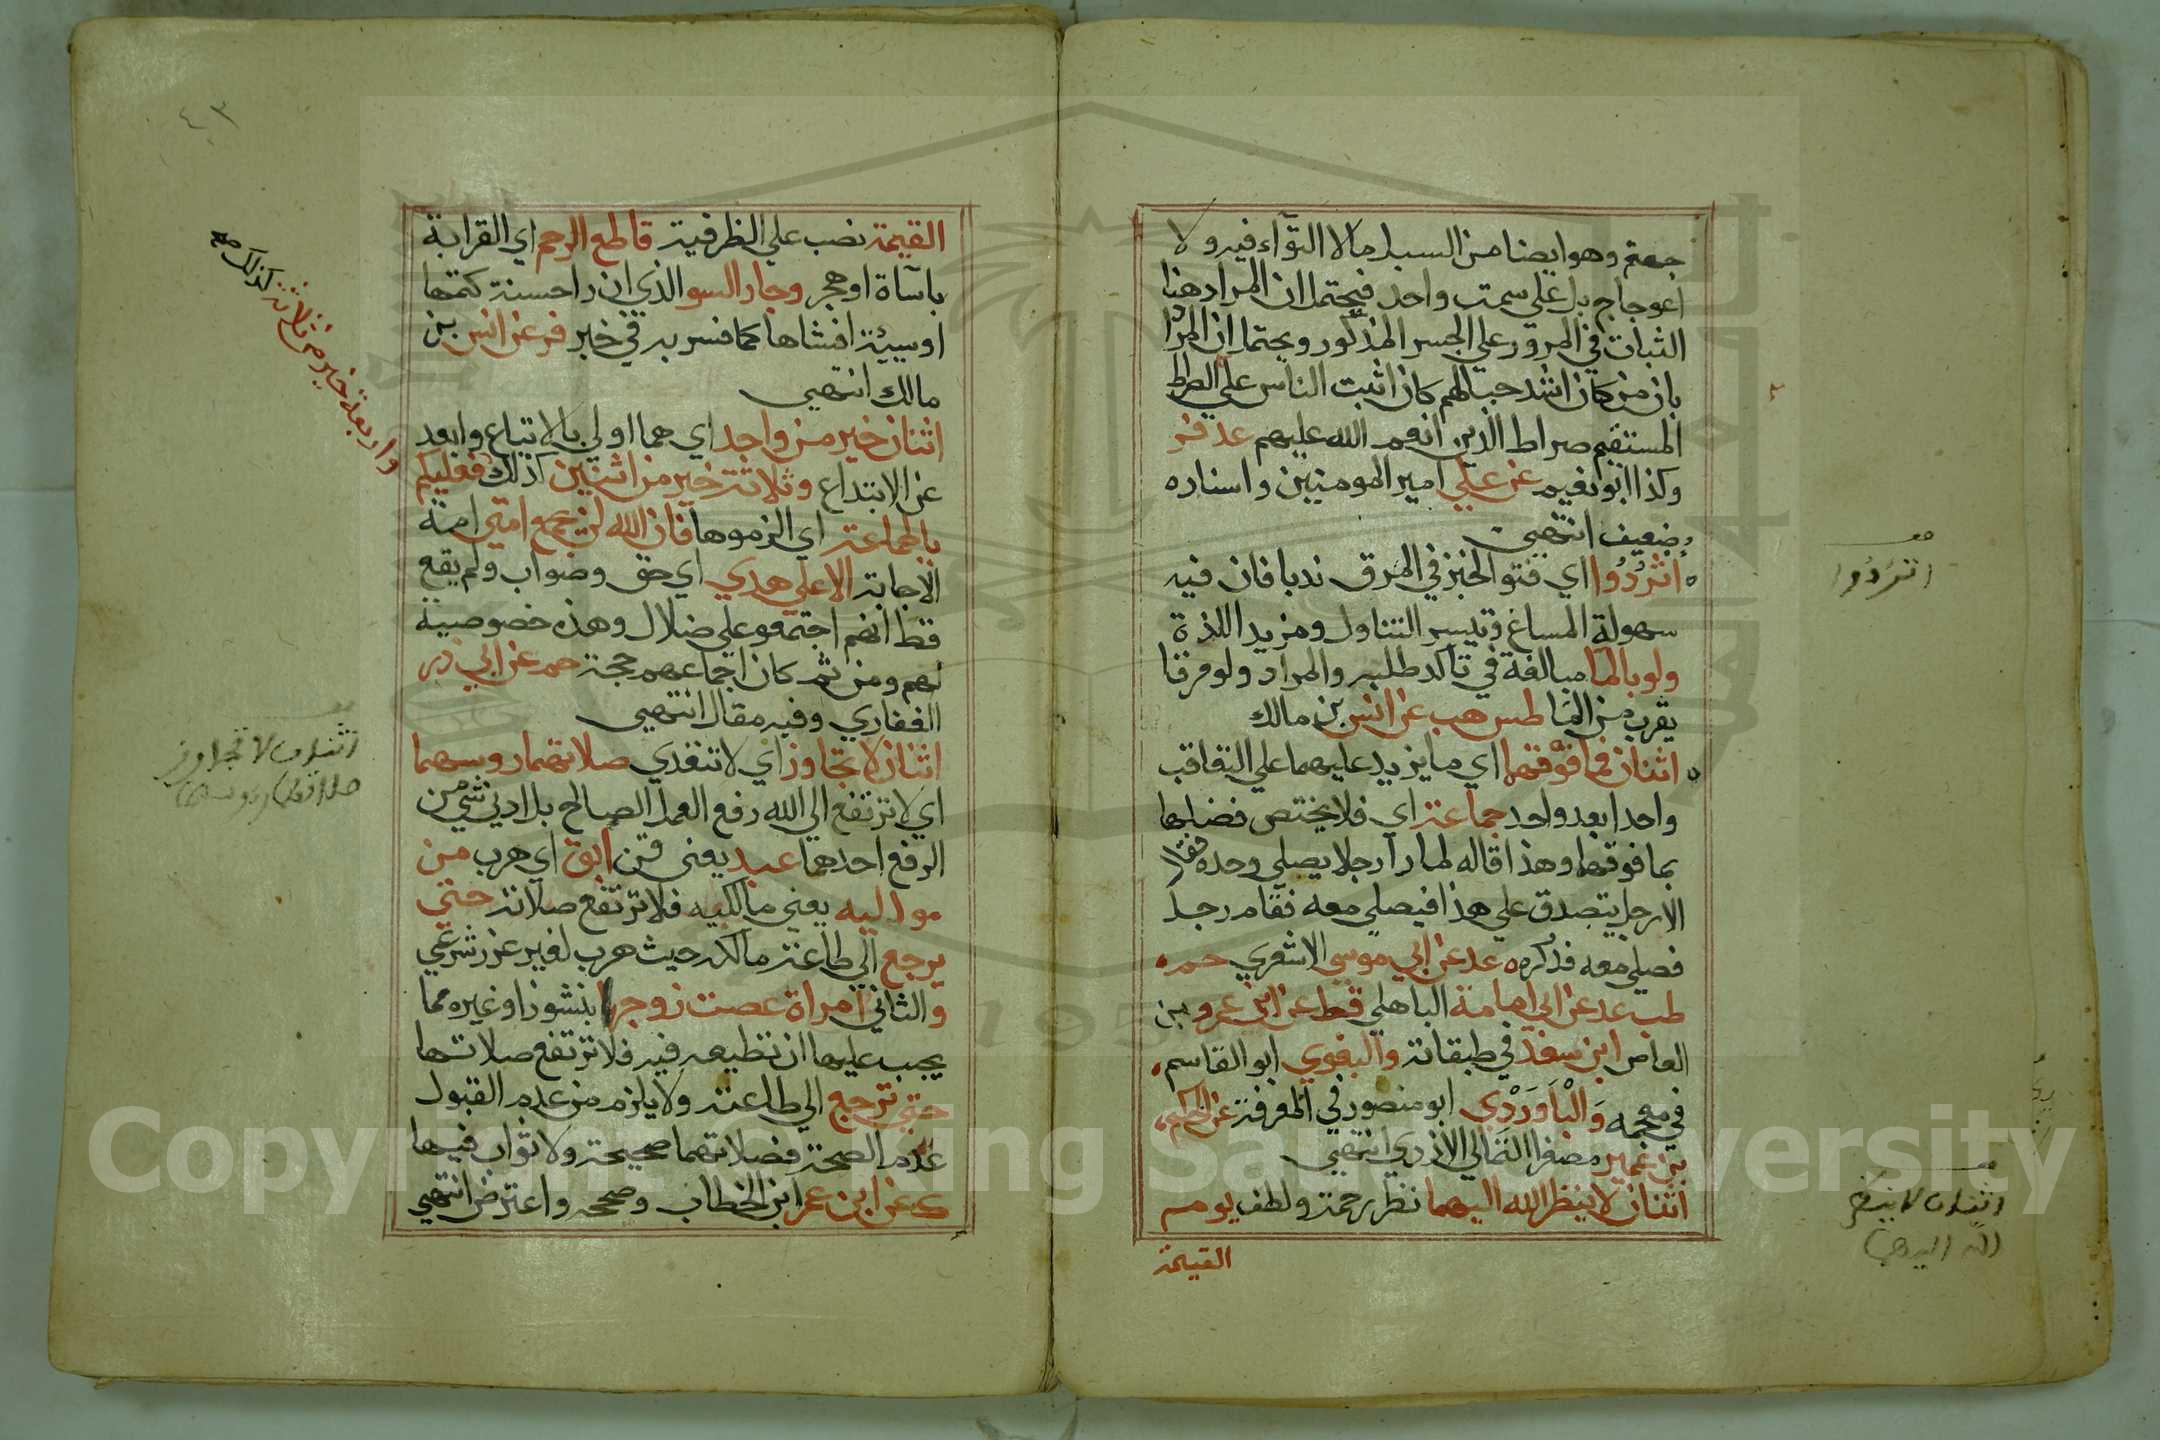 جهنم وهو ايضا من السبل مالا التوآء فيه ولا
اعوجاج بل على سمت واحد فيحتمل ان المراد هنا
الثبات في المرور على الجسر المذكور ويحتمل ان المراد
بان من كان اشد حبا لهم كان اثبت الناس على الصراط
المستقيم صراط الذين انعم الله عليهم عد فر
وكذا ابو نعيم عن علي امير المومنين واسناده
ضعيف انتهى
اثْرُدُوا اي فتوا الخبز في المرق ندبا فان فيه
سهولة المساغ وتيسير التناول ومزيد اللذة
ولو بالما مبالغة في تاكد طلبه والمراد ولو مرقا
يقرب من الما طس هب عن انس بن مالك
اثنان فما فوقهما اي ما يزيد عليهما على التعاقب
واحدا بعد واحد جماعة اي فلا يختص فضلها
بما فوقهما وهذا قاله لما رآ رجلا يصلي وحده فقال
الا رجل يتصدق على هذا فيصلي معه فقام رجل
فصلى معه فذكره ه عد عن ابي موسى الاشعري حم
طب عد عن ابي امامة الباهلي قط عن ابن عمرو بن
العاص ابن سعد في طبقاته والبغوي ابو القاسم
في معجمه وَالْبَاوَرْدِي ابو منصور في المعرفة عن الحكم
بن عمير مصغرا الثمالي الازدي انتهى
اثنان لا ينظر الله اليهما نظر رحمة ولطف يوم
القيمة
اثردوا
اثنان لا ينظر
الله اليهما
القيمة نصب على الظرفية قاطع الرحم اي القرابة
باسآة او هجر وجار السو الذي ان را حسنة كتمها
او سيئة افشاها كما فسر به في خبر فر عن انس بن
مالك انتهى
اثنان خير من واحد اي هما اولى بالاتباع وابعد
عن الابتداع وثلاثة خير من اثنين كذلك فعليكم
بالجماعة اي الزموها فان الله لن يجمع امتي امة
الاجابة الا على هدي اي حق وصواب ولم يقع
قط انهم اجتمعو على ضلال وهذه خصوصية
لهم ومن ثم كان اجماعهم حجة حم عن ابي ذر
الغفاري وفيه مقال انتهى
اثنان لا تجاوز اي لا تتعدي صلاتهما روسهما
اي لا ترتفع الى الله رفع العمل الصالح بل ادني شي من
الرفع احدهما عبد يعني قن ابق اي هرب من
مواليه يعني مالكيه فلا ترتفع صلاته حتى
يرجع الى طاعة مالكه حيث هرب لغير عزر شرعي
والثاني امراة عصت زوجها بنشوز او غيره مما
يجب عليها ان تطيعه فيه فلا ترتفع صلاتها
حتى ترجع الى طاعته ولا يلزم من عدم القبول
عدم الصحة فصلاتهما صحيحة ولا ثواب فيها
ك عن ابن عمر ابن الخطاب وصححه واعترض انتهى
واربعة خير من ثلاثة كذلك صح
اثنان لا تجاوز
صلاتهما روسهما
٤٣
Copyright © King Saud University